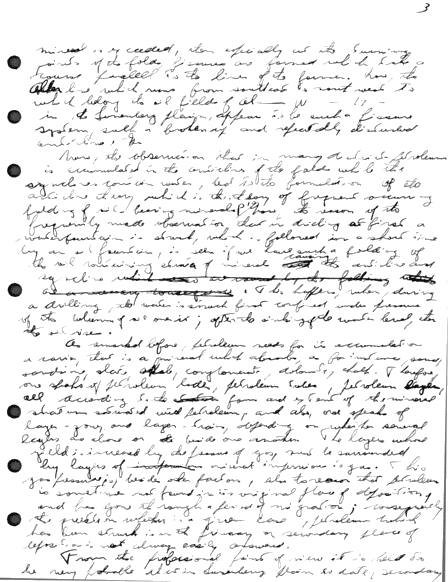 3
mineral is exceeded, then especially at the turning
points of the folds fissures are formed which take a
course parallel to the line of the former. Now, the
line which runs from southeast to northwest to
which belong the oil fields of
in the plains, appear to be such a fissure
system, such a broken up and repeatedly disturbed
anticline.
Now, the observation that in many districts petroleum
is accumulated in the anticlines of the folds while the
synclines contain water, led to the formulation of the
anticline theory, which is the theory of frequent occurring
folding of oil bearing minerals. Now the reason of the
frequently made observation that in drilling at first a
water fountain is struck, which is followed in a short time
by an oil fountain, is seen if we have such a folding of
the oil containing of mineral
syncline
. This happens, when, during
a drilling, the water is struck first confined under pressure
of the column of oil or air; after the sinking of the water level, then
the oil rises.
As remarked before, petroleum needs for its accumulation
a carrier, that is a mineral which absorbs, as for instance, sand,
sandstone, slate, conglomerate, dolomite, chalk. Therefore,
one speaks of petroleum beds, petroleum , petroleum layers,
all according to the form and extent of the mineral
that is saturated with petroleum, and also, one speaks of
layer-groups and layer-trains, depending on whether several
layers lie above or beside one another. The layers whose
yield is increased by the pressure of gas, must be surrounded
by layers of mineral impervious to gas. This
gas pressure is, besides other factors, also the reason that petroleum
is sometimes not found in its original place of deposition,
and has gone through a period of migration; consequently
the question whether in a given case, petroleum which
has been struck is in the primary or secondary place of
deposition is not always easily answered.
From the professional point of view it is
be very probable